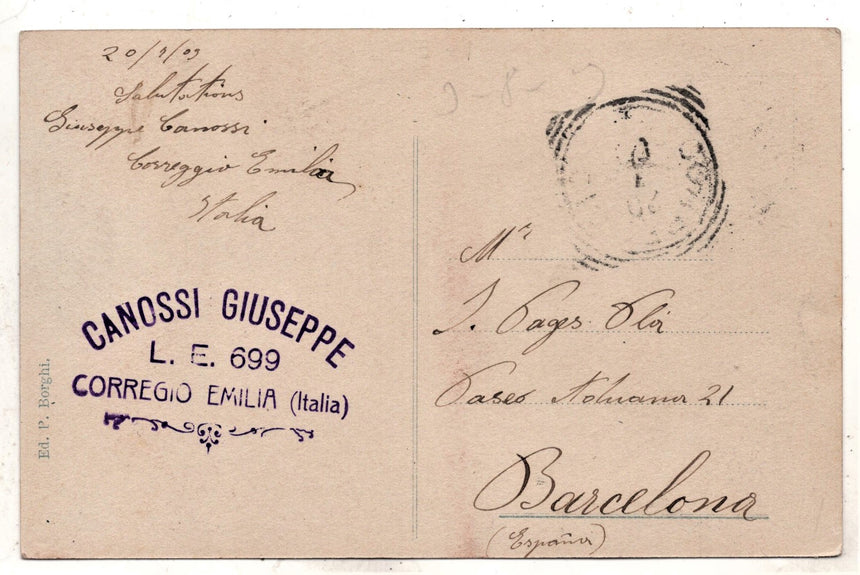 20/9/09
Salutations
Giuseppe Canossi
Correggio Emilia
Italia
CANOSSI GIUSEPPE
L. E. 699
CORREGIO EMILIA (Italia)
Ed. P. Borghi.
Mr
J. Pages Pla
Paseo Aduana 21
Barcelona
(España)